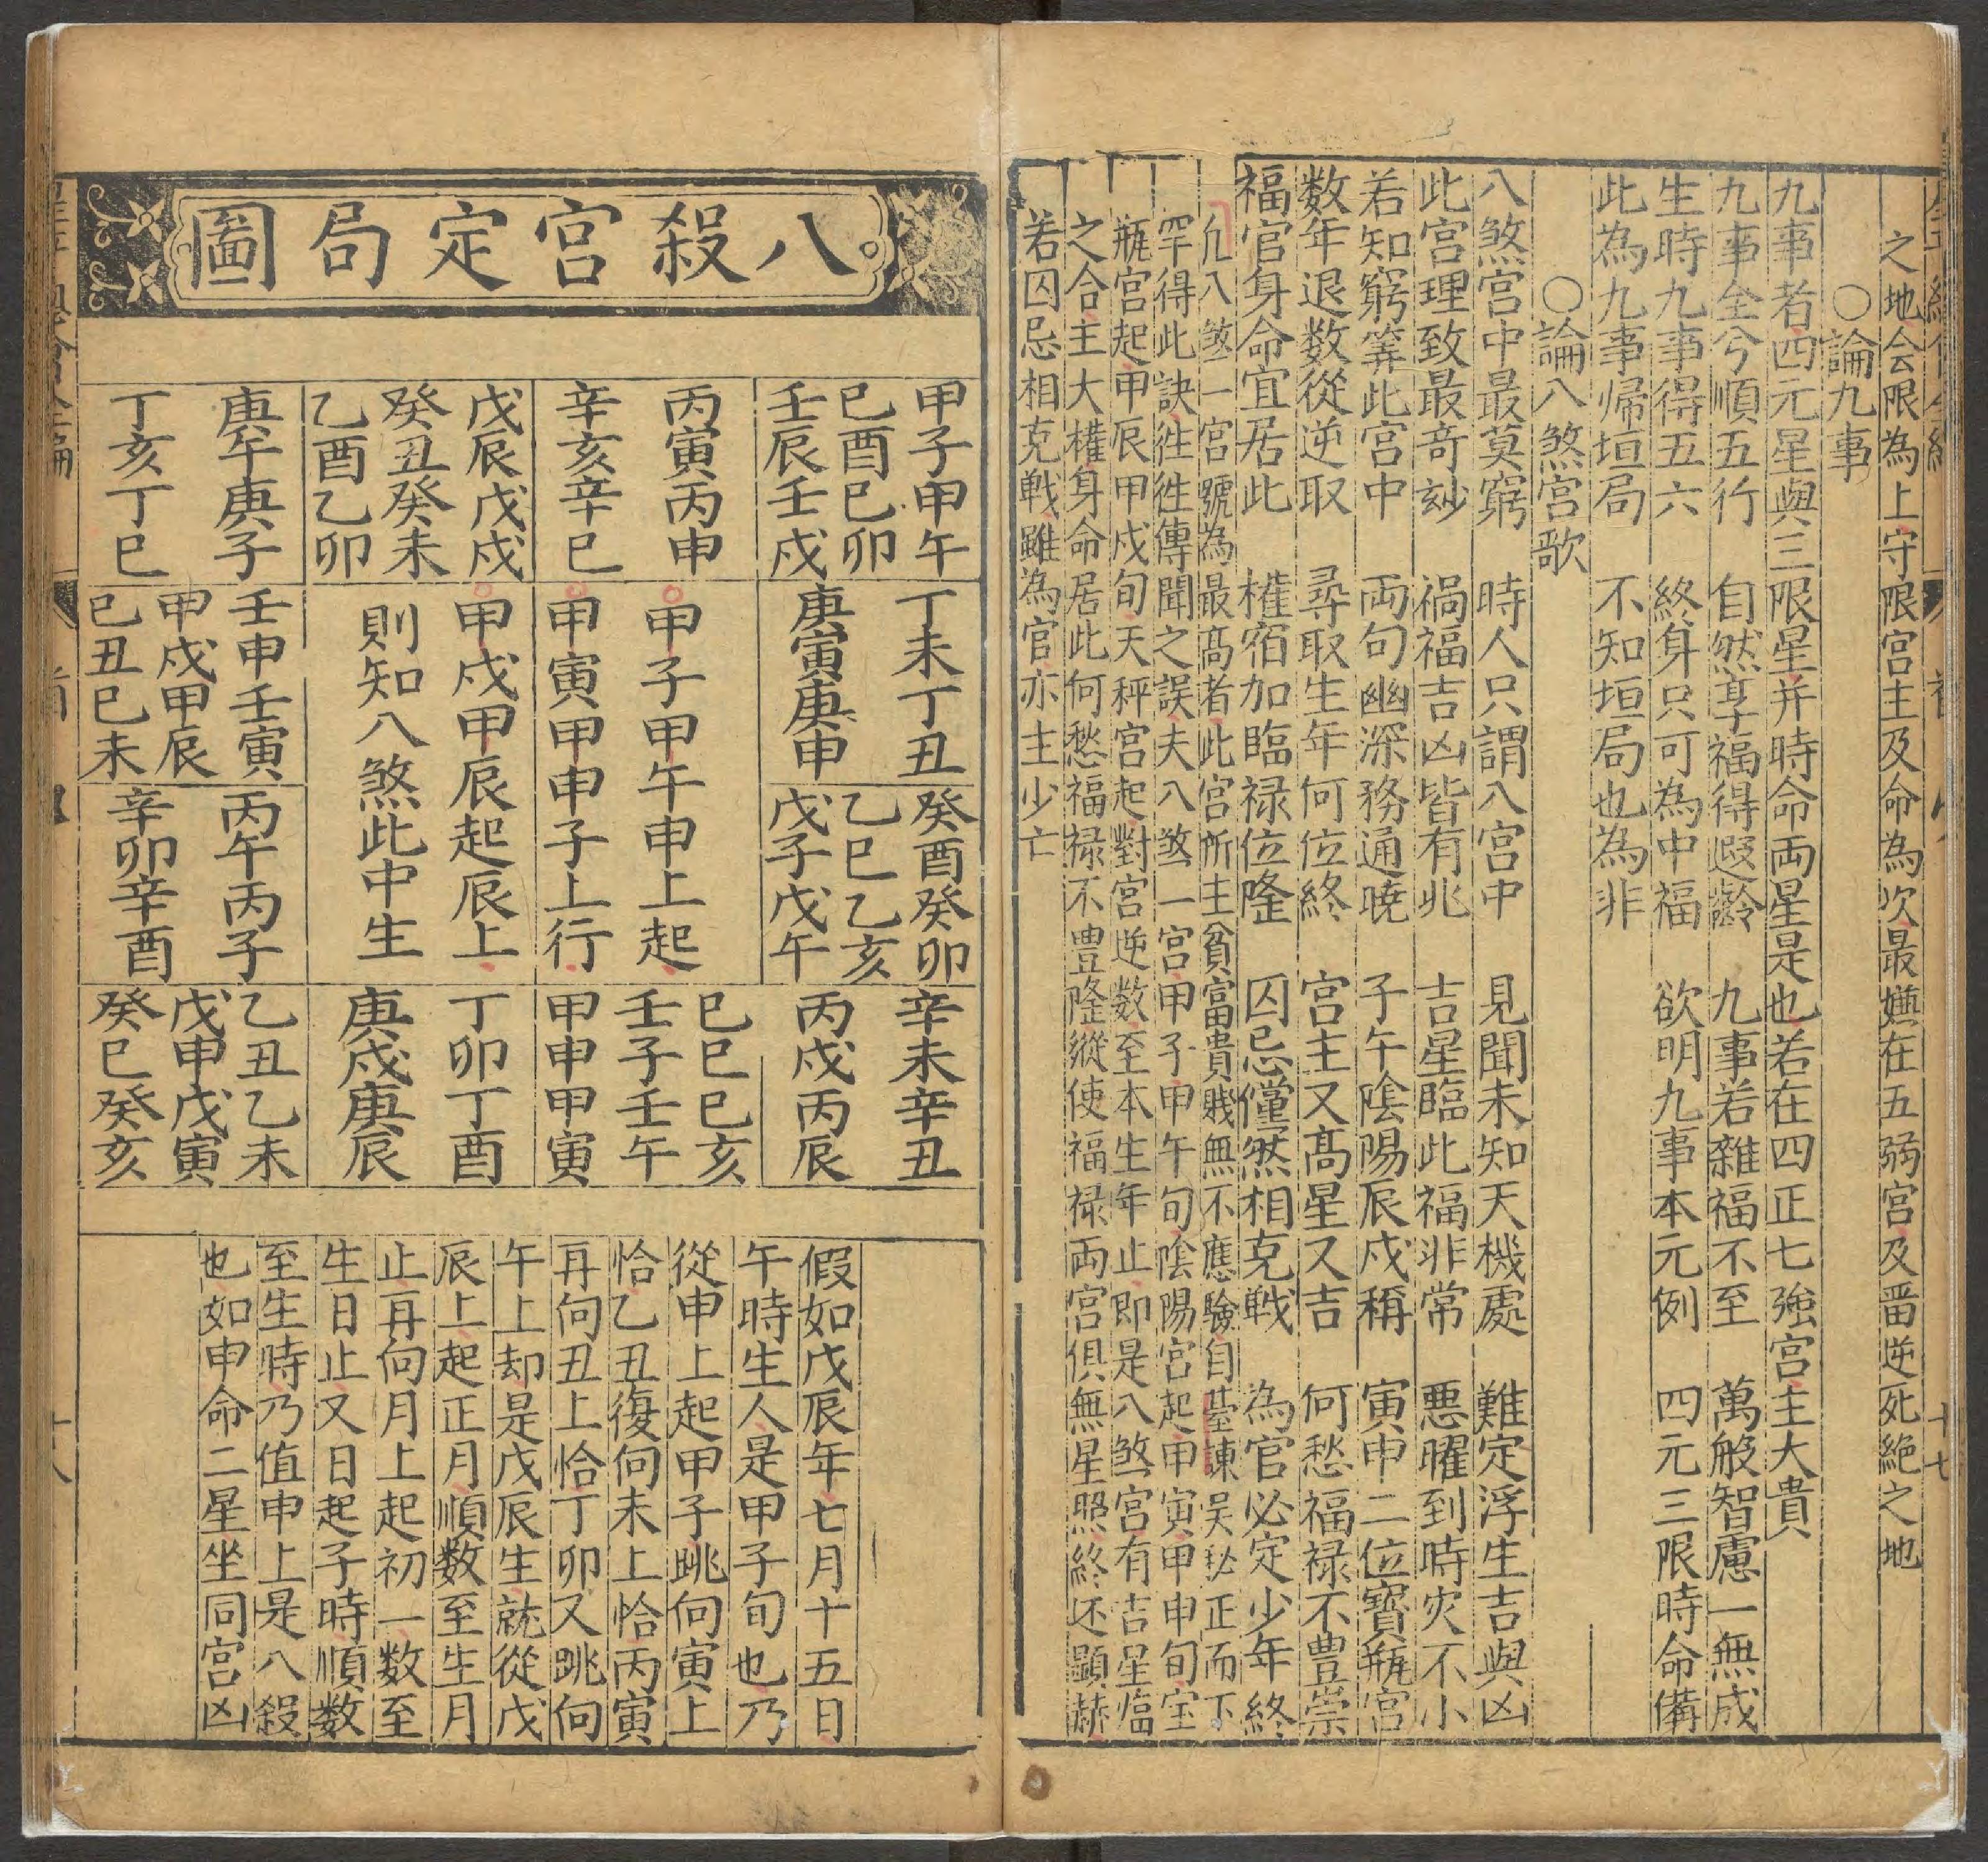 之地会限為上守限宮主及命為次最嫌在五弱宮及畱逆死絶之地
○論九事
九事者四元星與三限星并時命両星是也若在四正七強宮主大貴
九事全兮順五行　自然享福得遐齡　九事若雜福不至　萬般智慮一無成
生時九事得五六　終身只可為中福　欲明九事本元例　四元三限時命備
此為九事帰垣局　不知垣局也為非
○論八煞宮歌
八煞宮中最莫窮　時人只謂八宮中　見聞未知天機處　難定浮生吉與凶
此宮理致最竒玅　禍福吉凶皆有兆　吉星臨此福非常　悪曜到時灾不小
若知窮筭此宮中　両句幽深務通曉　子午陰陽辰戌稱　寅申二位寳瓶宮
数年退数從逆取　尋取生年何位終　宮主又髙星又吉　何愁福禄不豊崇
福官身命宜居此　權宿加臨禄位隆　囚忌僅然相克戦　為官必定少年終
凢八煞一宮號為最髙者此宮所主貧富貴賤無不應驗自䑓諫吴秘正而下
罕得此訣徃徃傳聞之誤夫八煞一宮甲子甲午旬陰陽宮起甲寅甲申旬宝
瓶宮起甲辰甲戌旬天秤宮起對宮逆数至本生年止即是八煞宮有吉星臨
之合主大權身命居此何愁福禄不豊隆縱使福禄両宮俱無星照終还顕赫
若囚忌相克戦雖為官亦主少亡
十七
八殺宮定局圖
甲子甲午
己酉己卯
壬辰壬戌
丙寅丙申
辛亥辛巳
戊辰戊戌
癸丑癸未
乙酉乙卯
庚午庚子
丁亥丁巳
丁未丁丑
庚寅庚申
癸酉癸卯
乙巳乙亥
戊子戊午
甲子甲午申上起
甲寅甲申子上行
甲戌甲辰起辰上
則知八煞此中生
壬申壬寅
甲戌甲辰
己丑己未
丙午丙子
辛卯辛酉
辛未辛丑
丙戌丙辰
己巳己亥
壬子壬午
甲申甲寅
丁卯丁酉
庚戌庚辰
乙丑乙未
戊申戊寅
癸巳癸亥
假如戊辰年七月十五日
午時生人是甲子旬也乃
從申上起甲子眺向寅上
恰乙丑復向未上恰丙寅
再向丑上恰丁卯又眺向
午上却是戊辰生就從戊
辰上起正月順数至生月
止再向月上起初一数至
生日止又日起子時順数
至生時乃值申上是八殺
也如申命二星坐同宮凶
十八